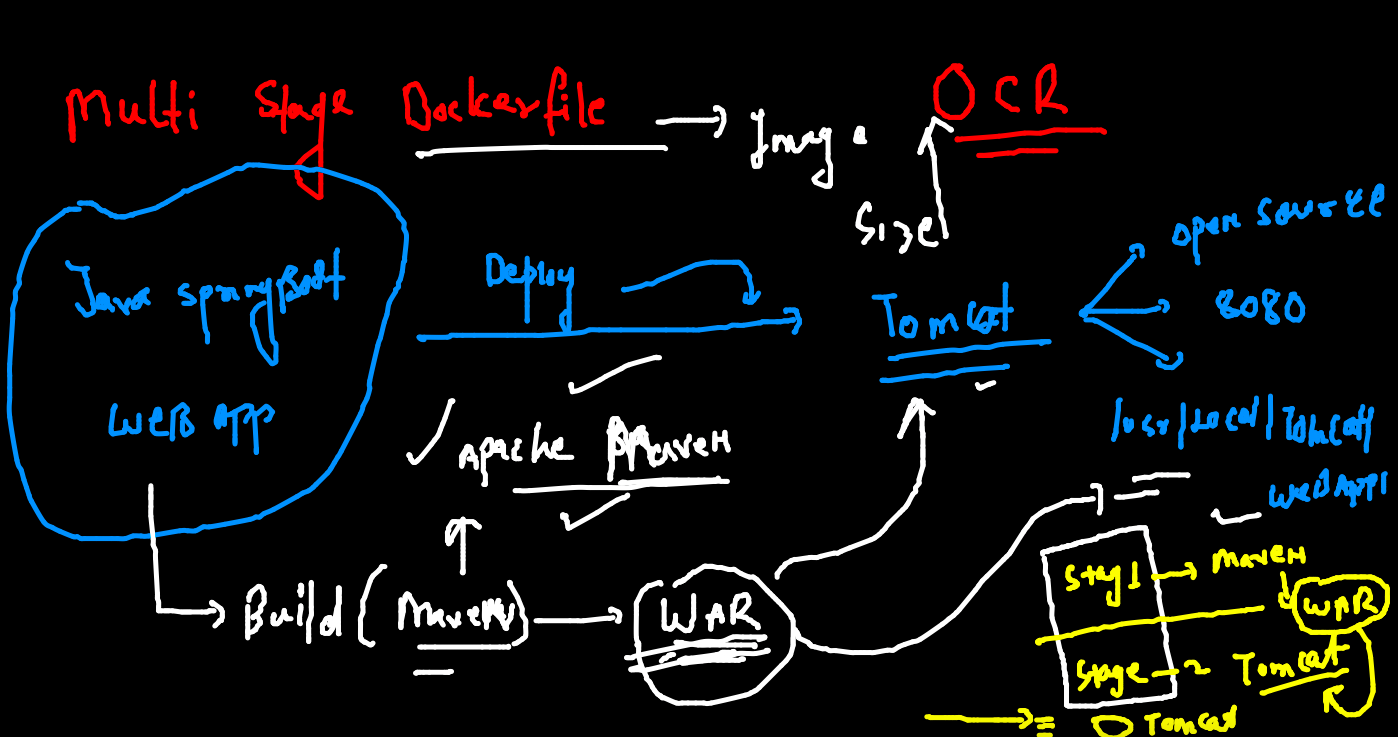 Multi Stage Dockerfile → Image
OCR
Size
Java springBoot
WEB APP
Deploy
Tomcat
open source
8080
/usr/Local/Tomcat/
WEBAPP
APache Maven
Build (Maven) → WAR
Stag1 → Maven
WAR
Stage - 2 Tomcat
Tomcat